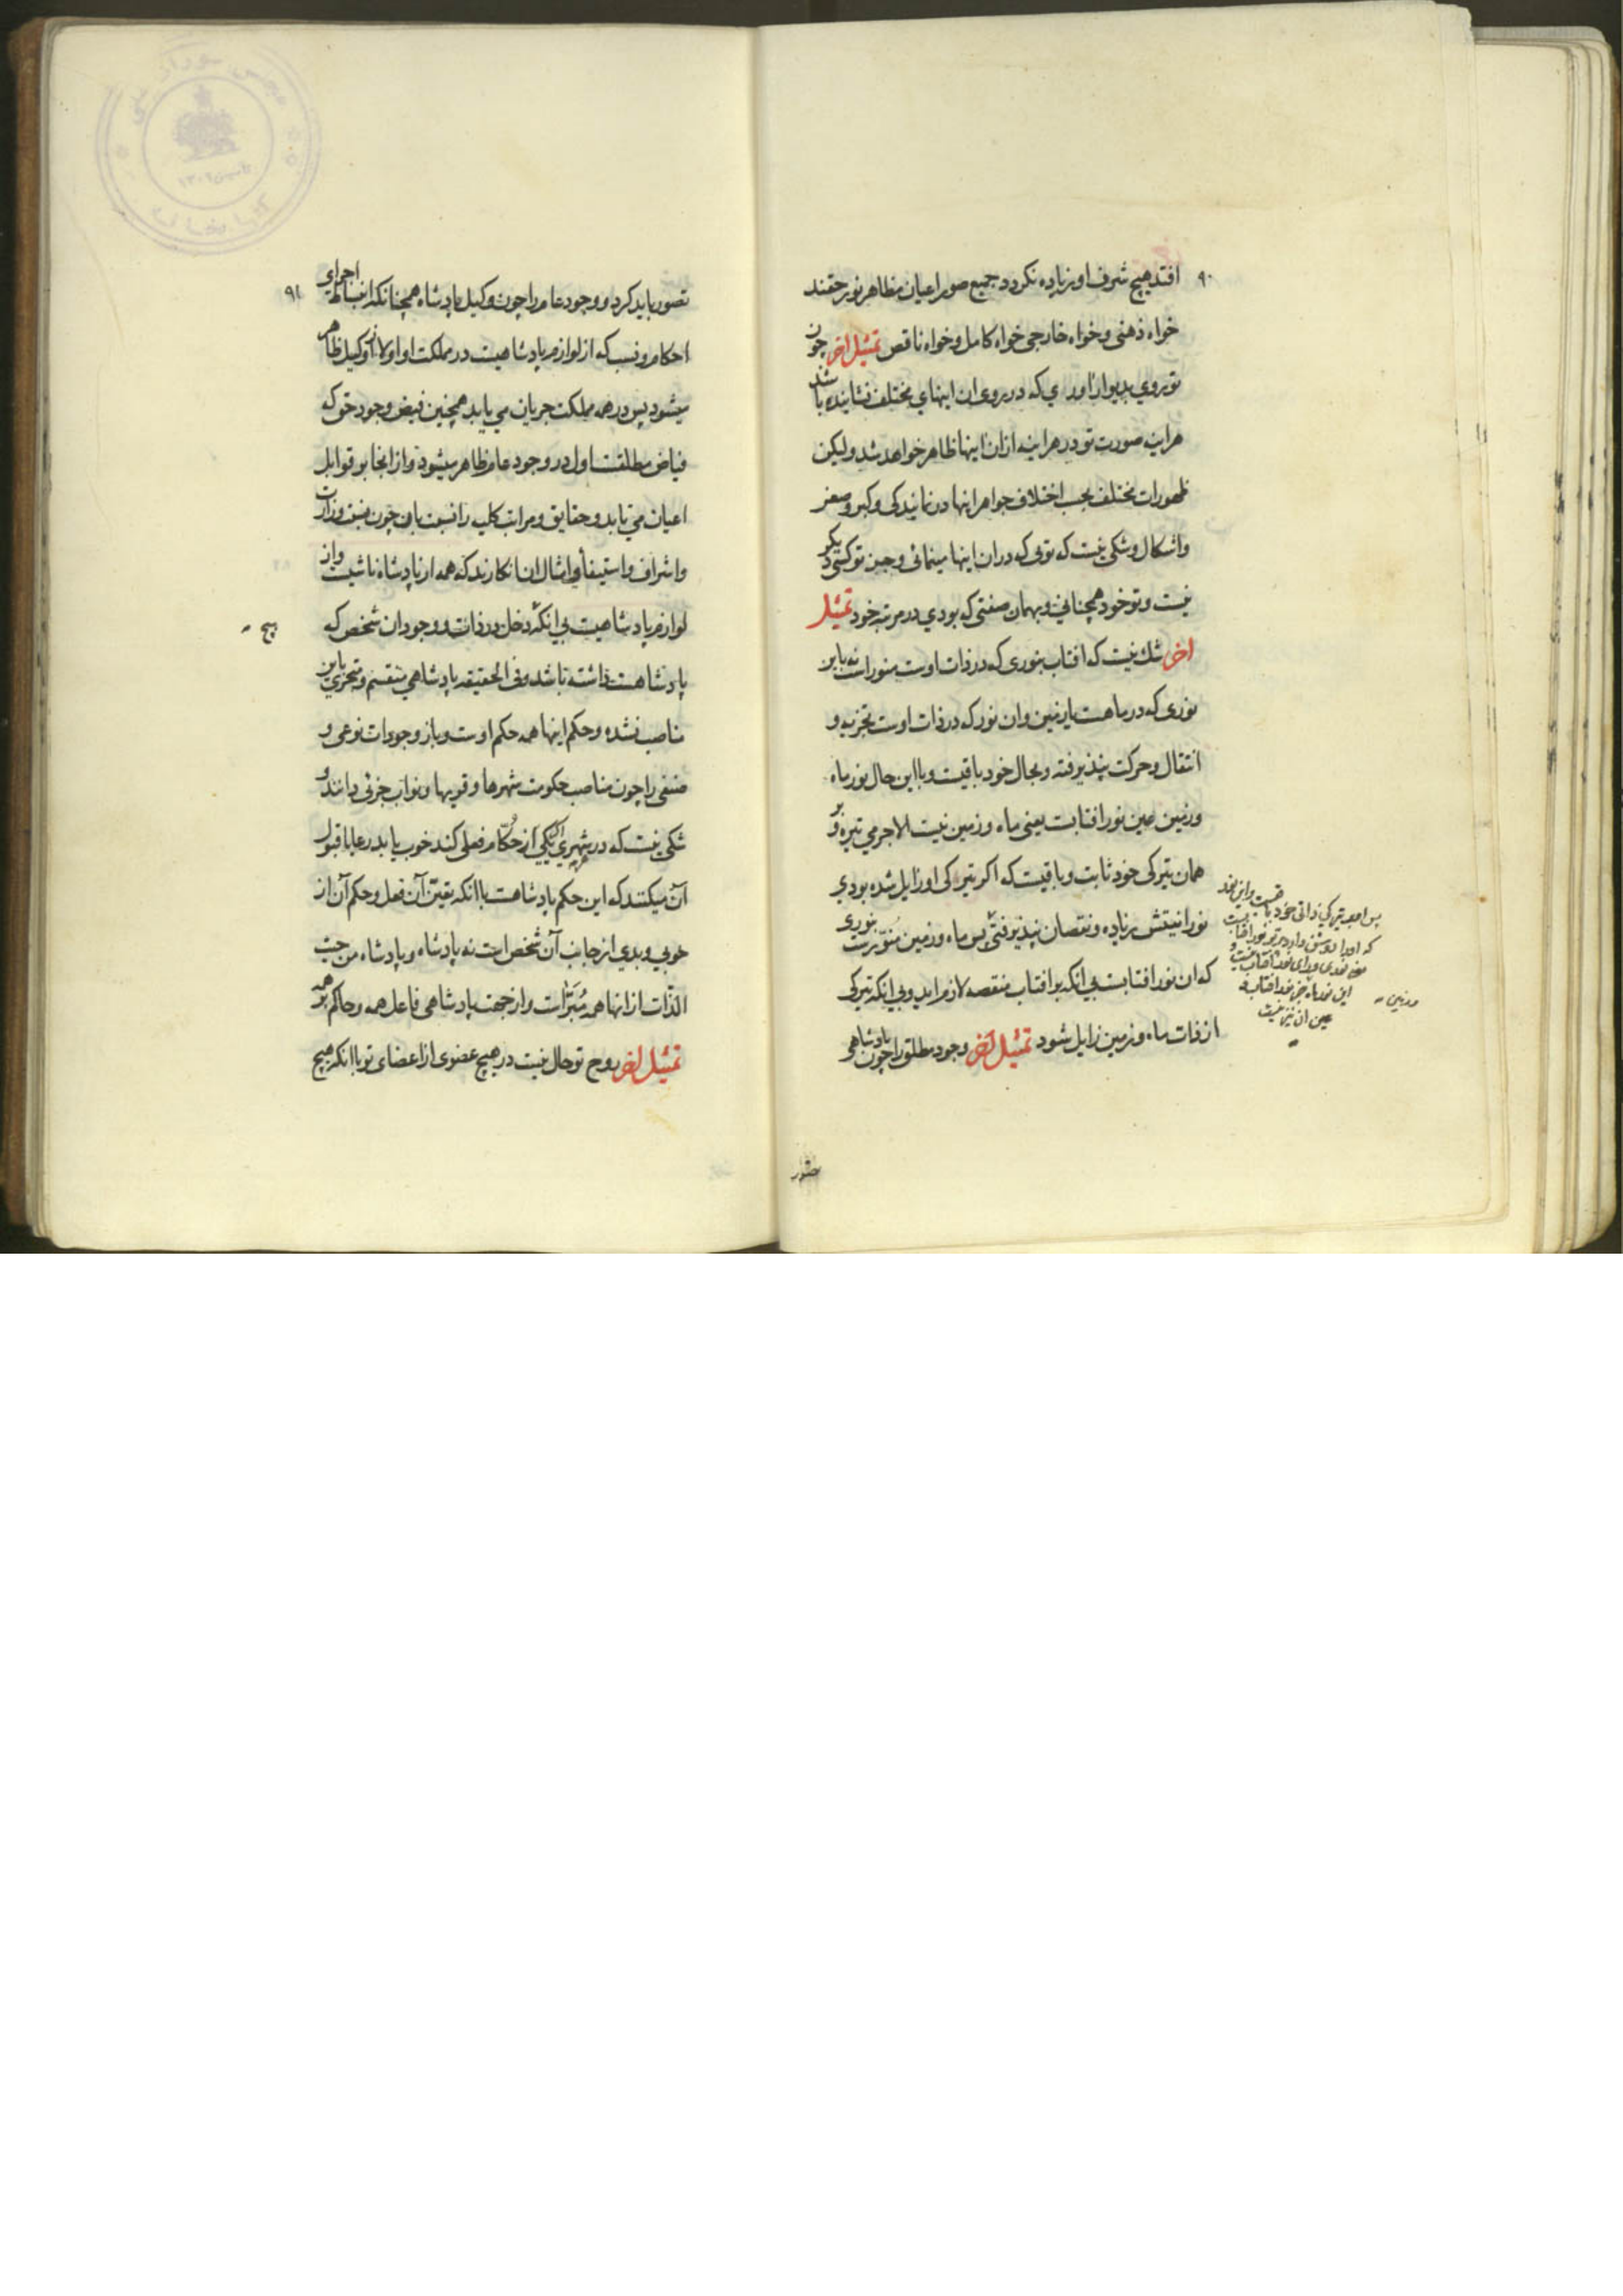 ۹۰
افتد هیچ شرف او زیاده نکردد جمیع صور اعیان مظاهر نور حقند
خواه ذهنی و خواه خارجی خواه کامل و خواه ناقص تمثیل اخر چون
تو روی بدیوار اوری که در روی ان اینهای مختلف نشانیده باشند
هراینه صورت تو در هر اینه ازان اینها ظاهر خواهد شد ولیکن
ظهورات مختلف بحسب اختلاف جواهر اینها در نمایندکی و کبر و صغر
و اشکال و شکی نیست که تویی که دران اینها مینمائی و جز تو کسی دیکر
نیست و تو خود همچنانی و بهمان صفتی که بودی در مرتبه خود تمثیل
اخر شک نیست که افتاب بنوری که در ذات اوست منور است نه باین
نوری که در ماهست یا زمین وان نور که در ذات اوست تجزیه و
انتقال و حرکت نپذیرفته و بحال خود باقیست و با این حال نور ماه
و زمین عین نور افتابست یعنی ماه و زمین نیست الا جرمی تیره و بر
همان تیرکی خود ثابت و باقیست که اکر تیرکی او زایل شده بودی
نورانیتش زیاده و نقصان نپذیرفتی پس ماه و زمین منورست بنوری
که ان نور افتابست بی انکه بر افتاب منقصه لازم اید و بی انکه تیرکی
از ذات ماه و زمین زایل شود تمثیل اخر وجود مطلق را چون پادشاهی
پس او بر تیرکی ذاتی خود باقیست و این نور
که او را روشن دارد پرتو نور افتابست
این نور ماه جز نور افتاب
و زمین
عین ان نیز نیست
تصور
۹۱
تصور باید کرد و وجود عام را چون وکیل پادشاه همچنانکه انبساط اجرای
احکام و نسب که از لوازم پادشاهیست در مملکت او اولا از وکیل ظاهر
میشود پس در همه مملکت جریان می یابد همچنین فیض وجود حق که
فیاض مطلقست اول در وجود عام ظاهر میشود و از انجا بر قوابل
اعیان می تابد و حقایق و مراتب کلیه را نسبت بان چون نسبت وزارت
و اشراف و استیفا و امثال ان انکارند که همه از پادشاه ناشیست و از
لوازم پادشاهیست بی انکه دخل در ذات و وجود ان شخص که
هیچ
پادشاهست داشته باشد و فی الحقیقه پادشاهی منقسم و متجزی باین
مناصب نشده و حکم اینها همه حکم اوست و باز وجودات نوعی و
صنفی را چون مناصب حکومت شهرها و قریها و نواب جزئی دانند و
شکی نیست که در شهری اکر یکی از حکام فعلی کند خوب یا بد رعایا قبول
آن میکنند که این حکم پادشاهست با انکه تعین آن فعل و حکم آن از
خوبی و بدی از جانب آن شخص است نه پادشاه و پادشاه من حیث
الذات از انها همه مبراست و از جهت پادشاهی فاعل همه و حاکم بر همه
تمثیل اخر روح تو حال نیست در هیچ عضوی از اعضای تو با انکه هیچ
کتابخانه